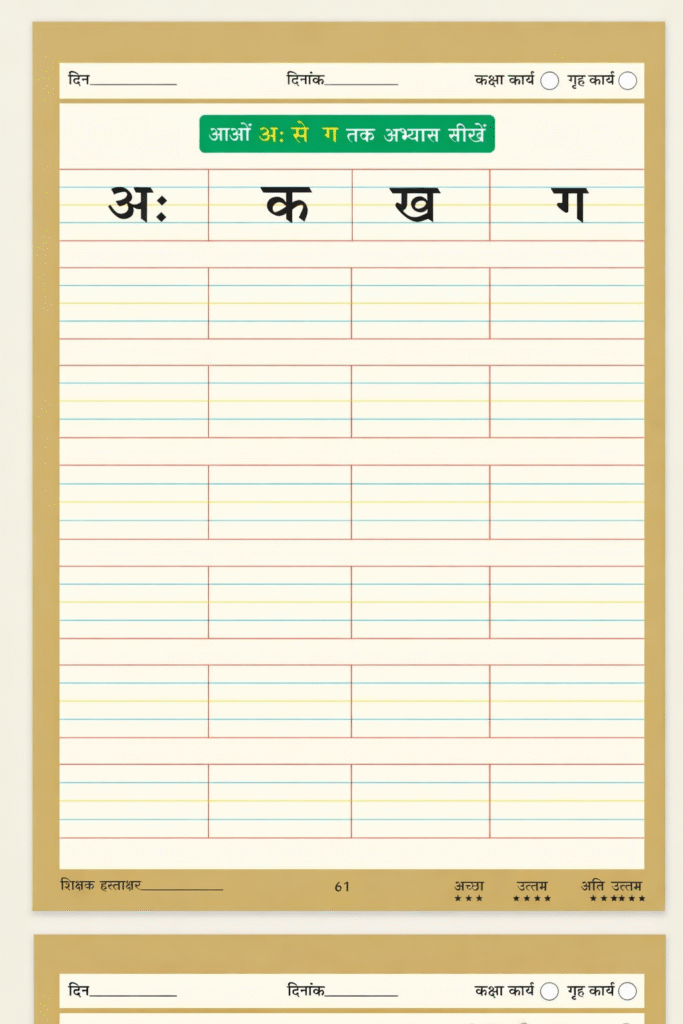 दिन__________ दिनांक__________ कक्षा कार्य गृह कार्य
आओं अः से ग तक अभ्यास सीखें
अः क ख ग
शिक्षक हस्ताक्षर__________ 61 अच्छा उत्तम अति उत्तम
दिन__________ दिनांक__________ कक्षा कार्य गृह कार्य